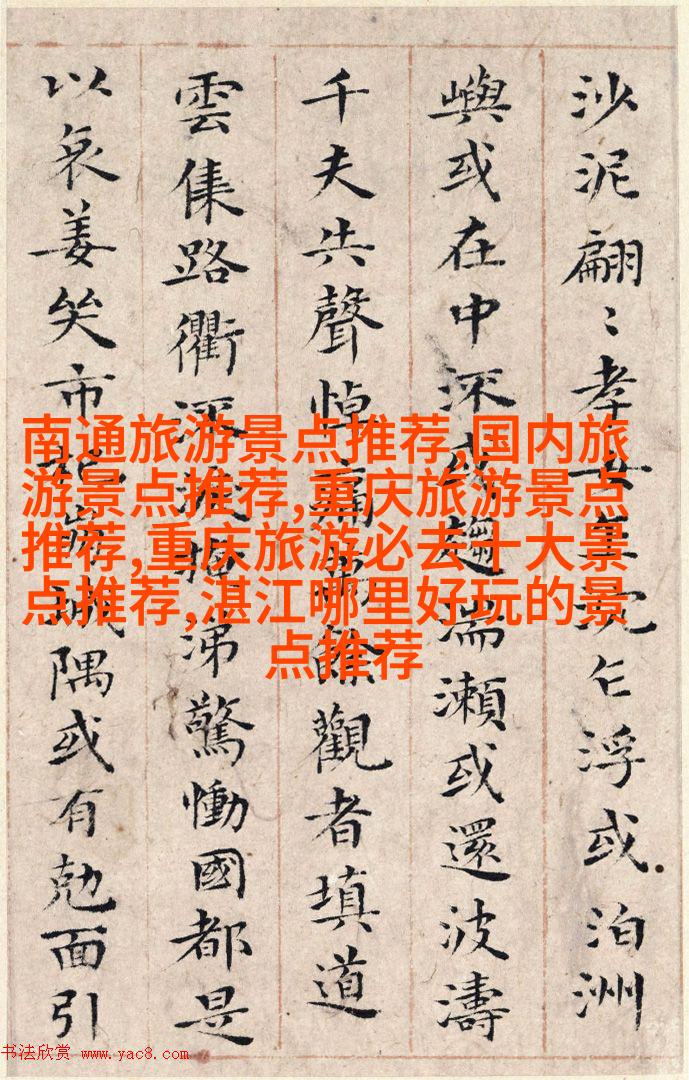 沙泥翩〻孝女乍沉乍浮或泊洲
嶼或在中流或趨湍瀨或還波濤
千夫失聲悼痛萬餘觀者填道
雲集路衢流淚掩涕驚慟國都是
以哀姜哭市杞崩城隅或有勊面引
南通旅游景点推荐,国内旅
游景点推荐,重庆旅游景点
推荐,重庆旅游必去十大景
点推荐,湛江哪里好玩的景
点推荐
书法欣赏 www.yac8.com